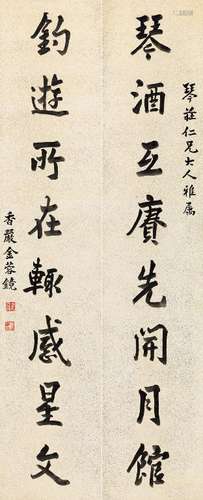 琴莊仁兄大人雅属
琴酒互賡先開月館
釣遊所在輙感星文
香嚴金蓉鏡